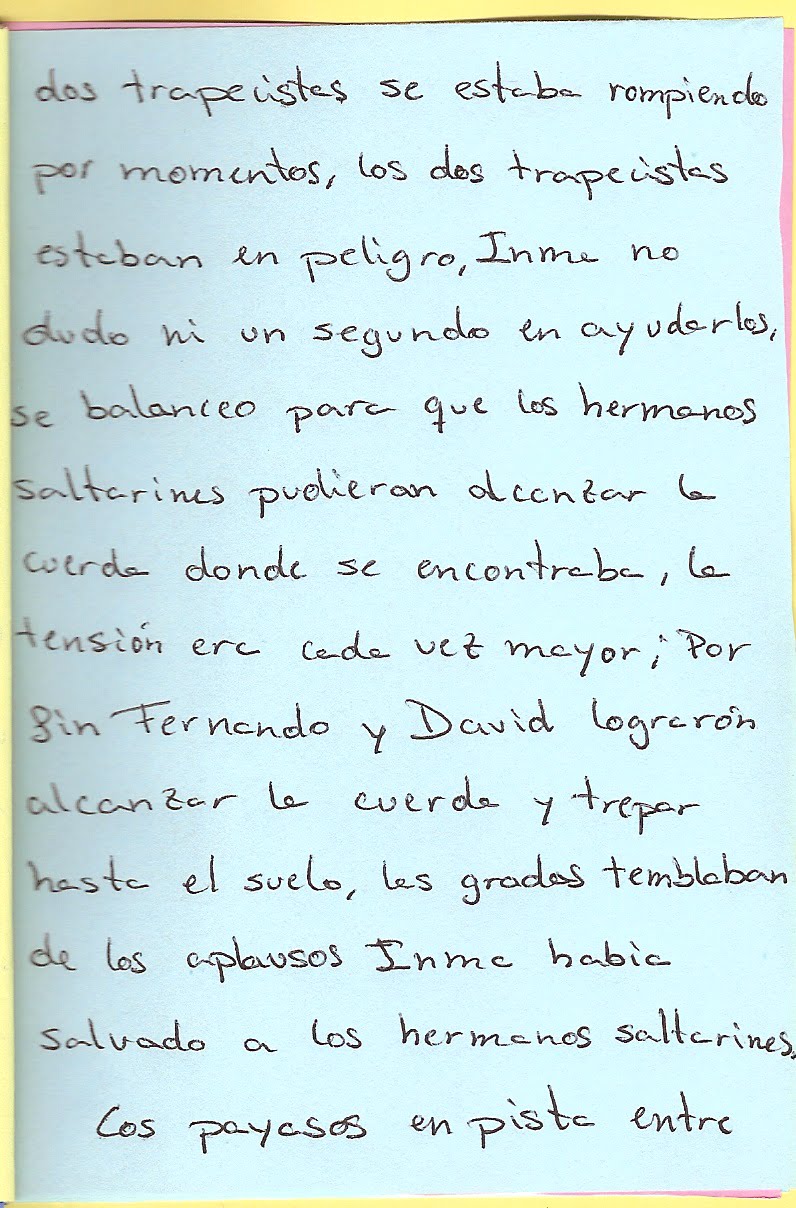 dos trapecistas se estaba rompiendo
por momentos, los dos trapecistas
estaban en peligro, Inma no
dudo ni un segundo en ayudarlos,
se balanceo para que los hermanos
saltarines pudieran alcanzar la
cuerda donde se encontraba, la
tensión era cada vez mayor; Por
fin Fernando y David lograrón
alcanzar la cuerda y trepar
hasta el suelo, las gradas temblaban
de los aplausos Inma habia
salvado a los hermanos saltarines.
Los payasos en pista entre